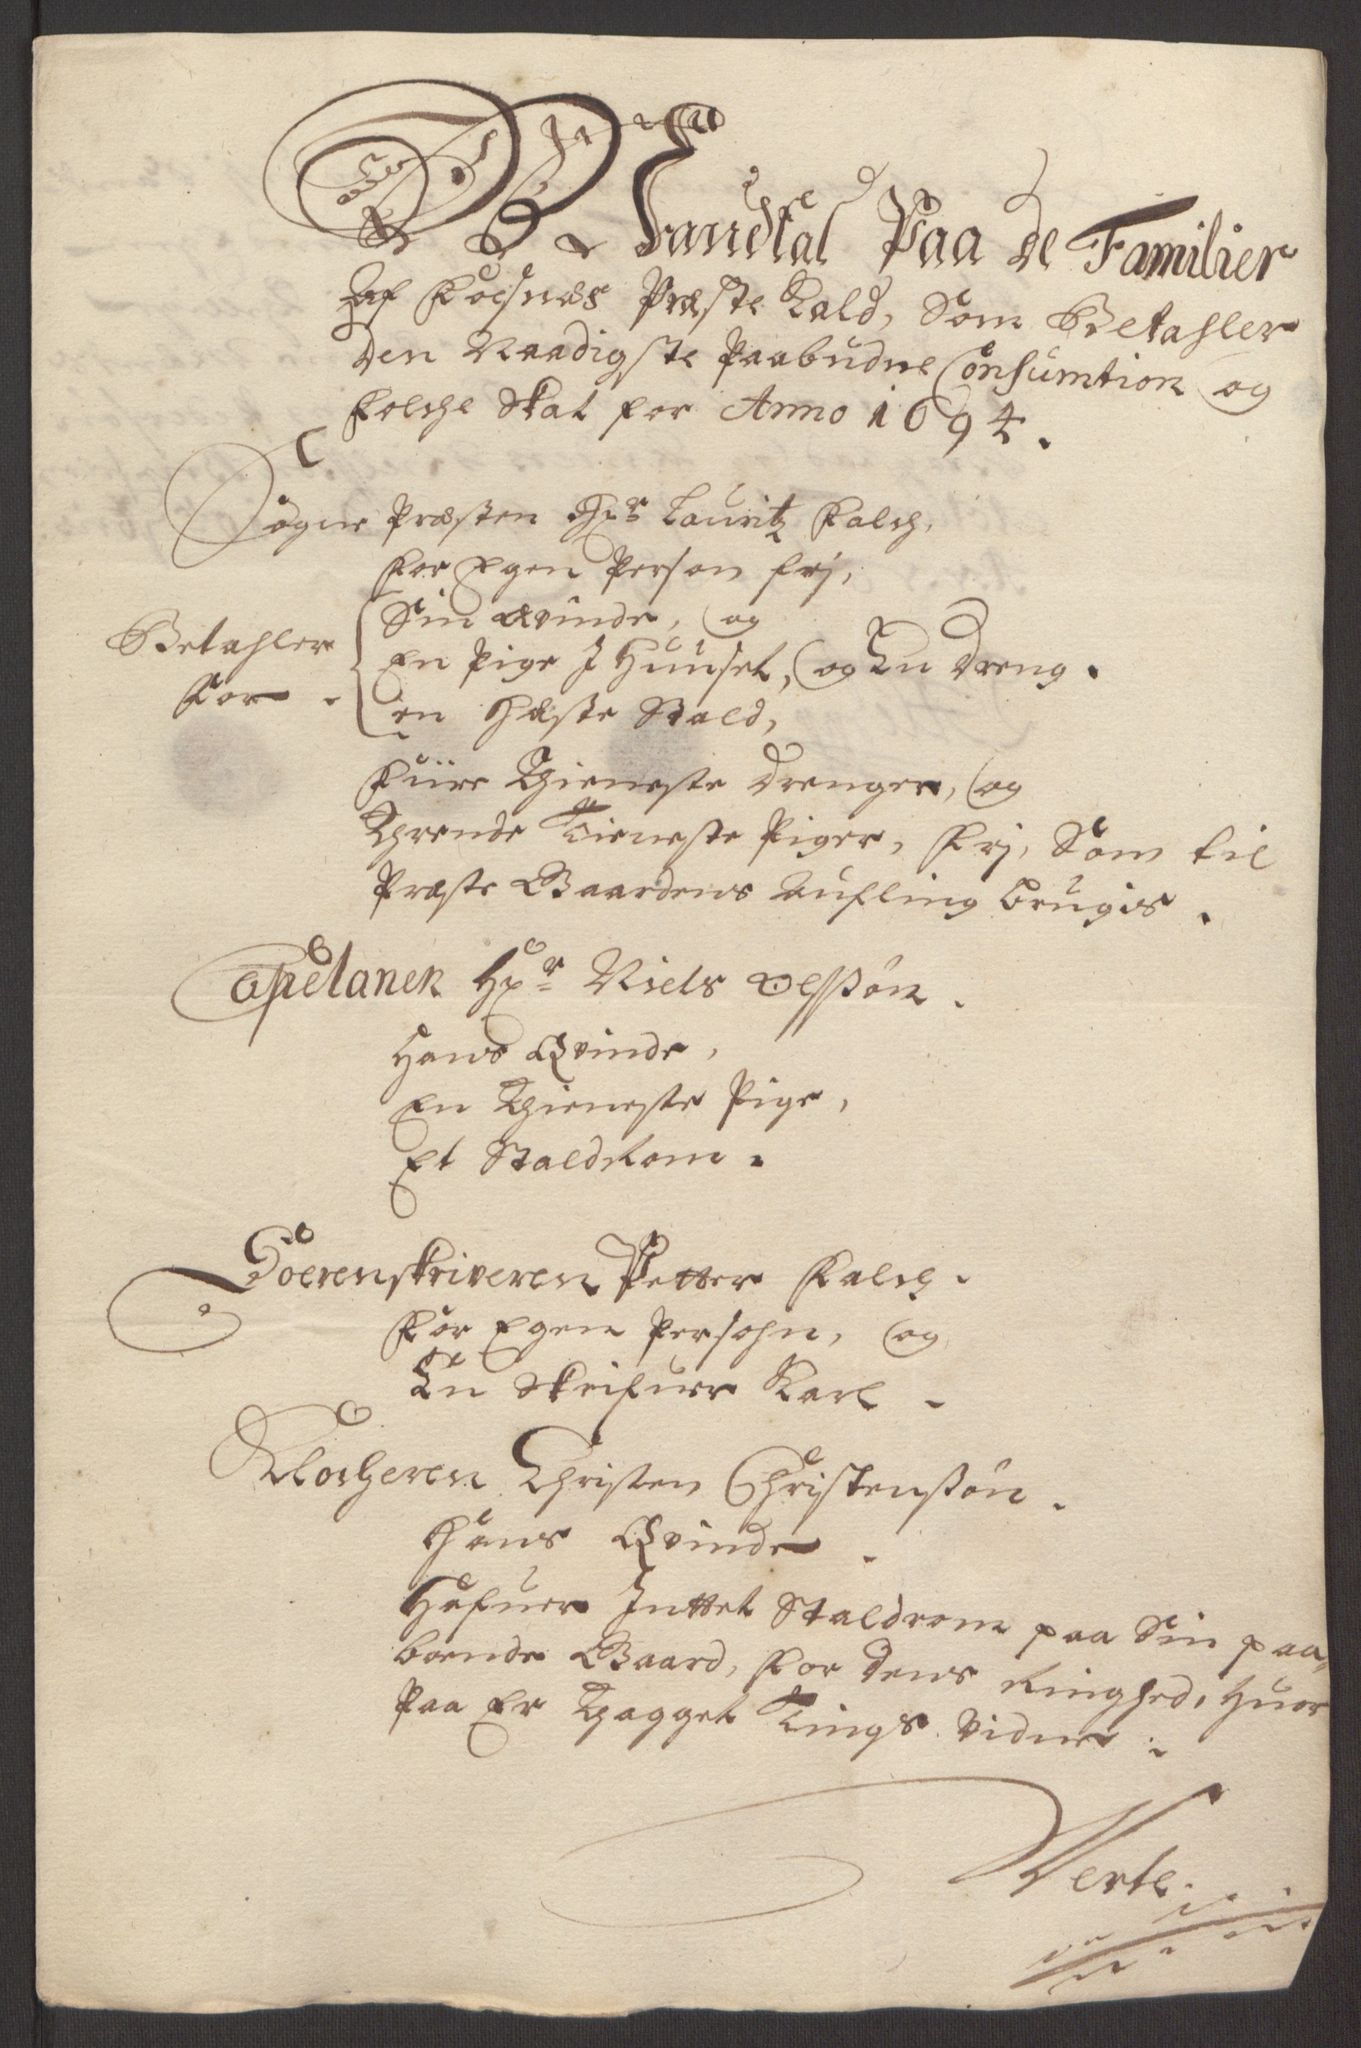 Mandtal Paa de Familier
Af Fosnæs Præste Kald, Som Betahler
den Naadigste Paabudne Consumtion og
Folche Skat for Anno 1694.
Sogne Præsten Hr Lauritz Falch,
For Egen Person frj,
Sin Qvinde, og
Betahler
En Pige J Huuset, og En dreng.
For
en Hæste Stald,
Fiire Thieneste drenger, og
Thrende Tieneste Piger, frj, Som til
Præste Gaardens Aufling brugis.
Capelanen Hr Niels Olssøn.
Hans Qvinde,
En Thieneste Pige,
Et Staldrom.
Soerenskriveren Petter Falch.
For Egen Persohn, og
En Skrifuer Karl.
Klocheren Christen Christenssøn.
Hans Qvinde.
Hafuer Jnttet Staldrom paa Sin paa,
boende Gaard, for dens Ringhed, Huor
Paa Er Thagget Tings Vidne.
Verte